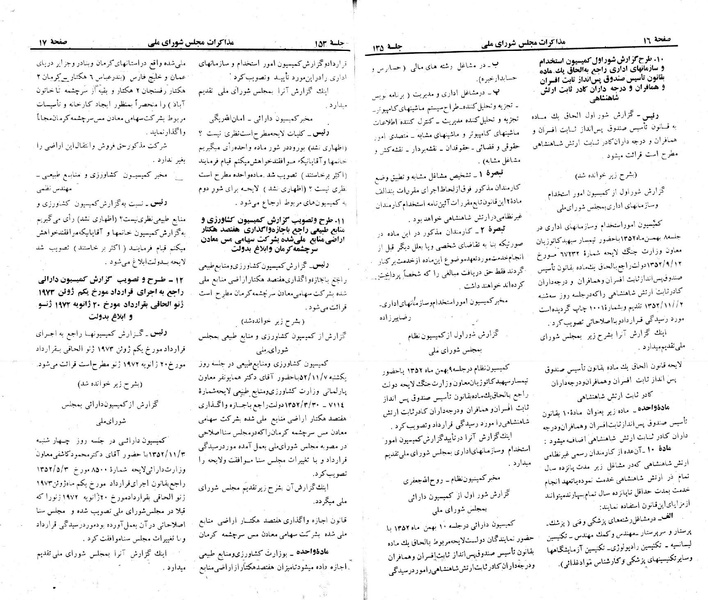 صفحه ۱۶
مذاکرات مجلس شورای ملی
جلسه ۱۳۵
۱۰. طرح گزارش شور اول کمیسیون استخدام
و سازمانهای اداری راجع به الحاق یک ماده
بقانون تأسیس صندوق پس‌انداز ثابت افسران
و همافران و درجه داران کادر ثابت ارتش
شاهنشاهی
رئیس ـ گزارش شور اول الحاق یک ماده
به قانون تأسیس صندوق پس‌انداز ثابت افسران و
همافران و درجه داران کادر ثابت ارتش شاهنشاهی
مطرح است قرائت میشود.
(بشرح زیر خوانده شد)
گزارش شور اول از کمیسیون امور استخدام
و سازمانهای اداری بمجلس شورای ملی
کمیسیون امور استخدام و سازمانهای اداری در
جلسه بهمن ماه ۱۳۵۲ با حضور تیمسار سپهبد کاتوزیان
معاون وزارت جنگ لایحه شمارهٔ
۱۳۵۲/۹/۱۲ دولت راجع به الحاق یک ماده بقانون تأسیس
صندوق پس‌انداز ثابت افسران و همافران و درجه‌داران
کادر ثابت ارتش شاهنشاهی را که در جلسه روز سه‌شنبه
۱۳۵۲/۱۱/۲ بشمارهٔ ۱۰۰۱ چاپ گردیده است
مورد رسیدگی قرار داد و با اصلاحاتی تصویب کرد.
اینک گزارش آنرا بشرح زیر بمجلس شورای
ملی تقدیم میدارد.
لایحه قانون الحاق یک ماده بقانون تأسیس صندوق
پس انداز ثابت افسران و همافران و درجه‌داران
کادر ثابت ارتش شاهنشاهی
ماده واحده ـ ماده زیر بعنوان مادهٔ ۱۰ بقانون
تأسیس صندوق پس‌انداز ثابت افسران و همافران و درجه
داران کادر ثابت ارتش شاهنشاهی اضافه میشود:
ماده ۱۰ ـ آن‌عده از کارمندان رسمی غیرنظامی
ارتش شاهنشاهی که در مشاغل زیر مدت پانزده سال
تمام در ارتش شاهنشاهی خدمت نموده یا تعهد انجام
خدمت بمدت حداقل تا پانزده سال تمام بسپارند میتوانند
از مزایای این قانون استفاده نمایند:
الف ـ در مشاغل رشته‌های پزشکی و فنی (پزشک ـ
پرستار و سرپرستار ـ مهندس و کمک مهندس ـ تکنسین
لیسانسیه ـ تکنیسین رادیولوژی ـ تکنسین آزمایشگاهها
و سایر تکنسینهای پزشکی و کارشناس مواد غذائی)
ب ـ در مشاغل رشته های مالی (حسابرس و
حسابدار خبره).
پ ـ در مشاغل اداری و مدیریت (برنامه نویس
ـ تجزیه و تحلیل کننده ـ طراح سیستم ماشینهای کامپیوتر ـ
تجزیه و تحلیل کننده مدیریت ـ کنترل کننده اطلاعات
ماشینهای کامپیوتر و ماشینهای مشابه ـ متصدی امور
حقوقی و قضائی ـ حقوقدان ـ نقشه‌بردار ـ نقشه‌کش و
مشاغل مشابه)
تبصره ۱ ـ تشخیص مشاغل مشابه و تطبیق وضع
کارمندان مذکور فوق از لحاظ اجرای مقررات بندالف
ماده ۲ این قانون تابع مقررات آئین‌نامه استخدام کارمندان
غیرنظامی ارتش شاهنشاهی خواهد بود.
تبصره ۲ ـ کارمندان مذکور در این ماده در
صورتیکه بنا به تقاضای شخصی و یا بعلل دیگر قبل از
انجام خدمت مورد تعهد موضوع این ماده از خدمت برکنار
گردند فقط حق دریافت مبالغی را که شخصاً پرداخته‌اند
خواهند داشت.
مخبر کمیسیون امور استخدام و سازمانهای اداری.
رضا پیرزاده
گزارش شور اول از کمیسیون نظام
بمجلس شورای ملی
کمیسیون نظام در جلسه ۹ بهمن ماه ۱۳۵۲ با حضور
تیمسار سپهبد کاتوزیان معاون وزارت جنگ لایحه دولت
راجع به الحاق یک ماده بقانون تأسیس صندوق پس‌انداز
ثابت افسران و همافران و درجه‌داران کادر ثابت ارتش
شاهنشاهی را مورد رسیدگی قرار داد و تصویب کرد.
اینک گزارش آنرا در تأیید گزارش کمیسیون امور
استخدام و سازمانهای اداری بمجلس شورای ملی تقدیم
میدارد.
مخبر کمیسیون نظام ـ روح‌اله جعفری
گزارش شور اول از کمیسیون دارائی
بمجلس شورای ملی
کمیسیون دارائی در جلسه ۱۰ بهمن ماه ۱۳۵۲ با
حضور نمایندگان دولت لایحه مربوط به الحاق یک ماده
بقانون تأسیس صندوق پس‌انداز ثابت افسران و همافران
و درجه‌داران کادر ثابت ارتش شاهنشاهی را مورد رسیدگی
جلسه ۱۵۳
مذاکرات مجلس شورای ملی
صفحه ۱۷
قرارداد و گزارش کمیسیون امور استخدام و سازمانهای
اداری را در این مورد تأیید و تصویب کرد.
اینک گزارش آنرا بمجلس شورای ملی تقدیم
میدارد.
مخبر کمیسیون دارائی ـ امان‌اله ریگی
رئیس ـ کلیات لایحه مطرح است نظری نیست؟
(اظهاری نشد) بورود در شور ماده واحده رأی میگیریم
خانمها و آقایانیکه موافقند خواهش میکنم قیام فرمایند
(اکثر برخاستند) تصویب شد. ماده واحده مطرح است
نظری نیست؟ (اظهاری نشد) لایحه برای شور دوم
به کمیسیون‌های مربوط ارجاع می‌شود.
۱۱. طرح و تصویب گزارش کمیسیون کشاورزی و
منابع طبیعی راجع باجازه واگذاری هفتصد هکتار
اراضی منابع ملی شده بشرکت سهامی مس معادن
سرچشمه کرمان و ابلاغ بدولت
رئیس ـ گزارش کمیسیون کشاورزی و منابع طبیعی
راجع باجازه واگذاری هفتصد هکتار از اراضی منابع ملی
شده بشرکت سهامی معادن مس سرچشمه کرمان مطرح است
قرائت می‌شود.
(بشرح زیر خوانده شد)
گزارش از کمیسیون کشاورزی و منابع طبیعی به مجلس
شورای ملی
کمیسیون کشاورزی و منابع طبیعی در جلسه روز
یکشنبه ۵۲/۱۱/۷ با حضور آقای دکتر همایونفر معاون
پارلمانی وزارت کشاورزی و منابع طبیعی لایحه شمارهٔ
۷۱۱۴ ـ ۱۳۵۲/۳/۳۰ دولت راجع باجازه واگذاری
هفتصد هکتار اراضی منابع ملی شده بشرکت سهامی
معادن مس سرچشمه کرمان را که در مجلس سنا اصلاحاتی
در مصوبه مجلس شورای ملی بعمل آمده مورد رسیدگی
قرارداد و با تغییرات مجلس سنا موافقت و لایحه را
تصویب کرد.
اینک گزارش آن بشرح زیر تقدیم مجلس شورای
ملی میگردد.
قانون اجازه واگذاری هفتصد هکتار اراضی منابع
ملی شده بشرکت سهامی معادن مس سرچشمه کرمان
ماده واحده ـ بوزارت کشاورزی و منابع طبیعی
اجازه داده میشود تا میزان هفتصد هکتار از اراضی منابع
ملی شده واقع در استانهای کرمان و بنادر و جزایر دریای
عمان و خلیج فارس (بندرعباس ۶ هکتار بین کرمان ۲
هکتار رفسنجان ۲ هکتار و بقیه از سرچشمه تا خاتون
آباد) را منحصراً بمنظور ایجاد کارخانه و تأسیسات
مربوط بشرکت سهامی معادن مس سرچشمه کرمان مجاناً
واگذار نماید.
شرکت مذکور حق فروش و انتقال این اراضی را
بغیر ندارد.
مخبر کمیسیون کشاورزی و منابع طبیعی ـ
مهندس نظمی
رئیس ـ نسبت به گزارش کمیسیون کشاورزی و
منابع طبیعی نظری نیست؟ (اظهاری نشد) رأی می‌گیریم
به گزارش کمیسیون خانمها و آقایانیکه موافقند خواهش
میکنم قیام فرمایند (اکثر برخاستند) تصویب شد
لایحه بدولت ابلاغ میشود.
۱۲ ـ طرح و تصویب گزارش کمیسیون دارائی
راجع به اجرای قرارداد مورخ یکم ژوئن ۱۹۷۳
ژنو الحاقی بقرارداد مورخ ۲۰ ژانویه ۱۹۷۲ ژنو
و ابلاغ بدولت
رئیس ـ گزارش کمیسیونها راجع به اجرای
قرارداد مورخ یکم ژوئن ۱۹۷۳ ژنو الحاقی بقرارداد
مورخ ۲۰ ژانویه ۱۹۷۲ ژنو مطرح است قرائت می‌شود.
(بشرح زیر خوانده شد)
گزارش از کمیسیون دارائی بمجلس
شورای ملی
کمیسیون دارائی در جلسه روز چهار شنبه
۱۳۵۲/۱۱/۳ با حضور آقای دکتر محمود کاشفی معاون
وزارت دارائی لایحه شمارهٔ ۸۵۰۰ مورخ ۱۳۵۲/۵/۳
راجع بقانون اجرای قرارداد مورخ یکم ماه ژوئن ۱۹۷۳
ژنو الحاقی بقرارداد مورخ ۲۰ ژانویه ۱۹۷۲ ژنو را که
قبلا در مجلس شورای ملی تصویب شده و مجلس سنا
اصلاحاتی در آن بعمل آورده مورد رسیدگی قرارداد
و با تغییرات مجلس سنا موافقت کرد.
اینک گزارش آنرا به مجلس شورای ملی تقدیم
میدارد.